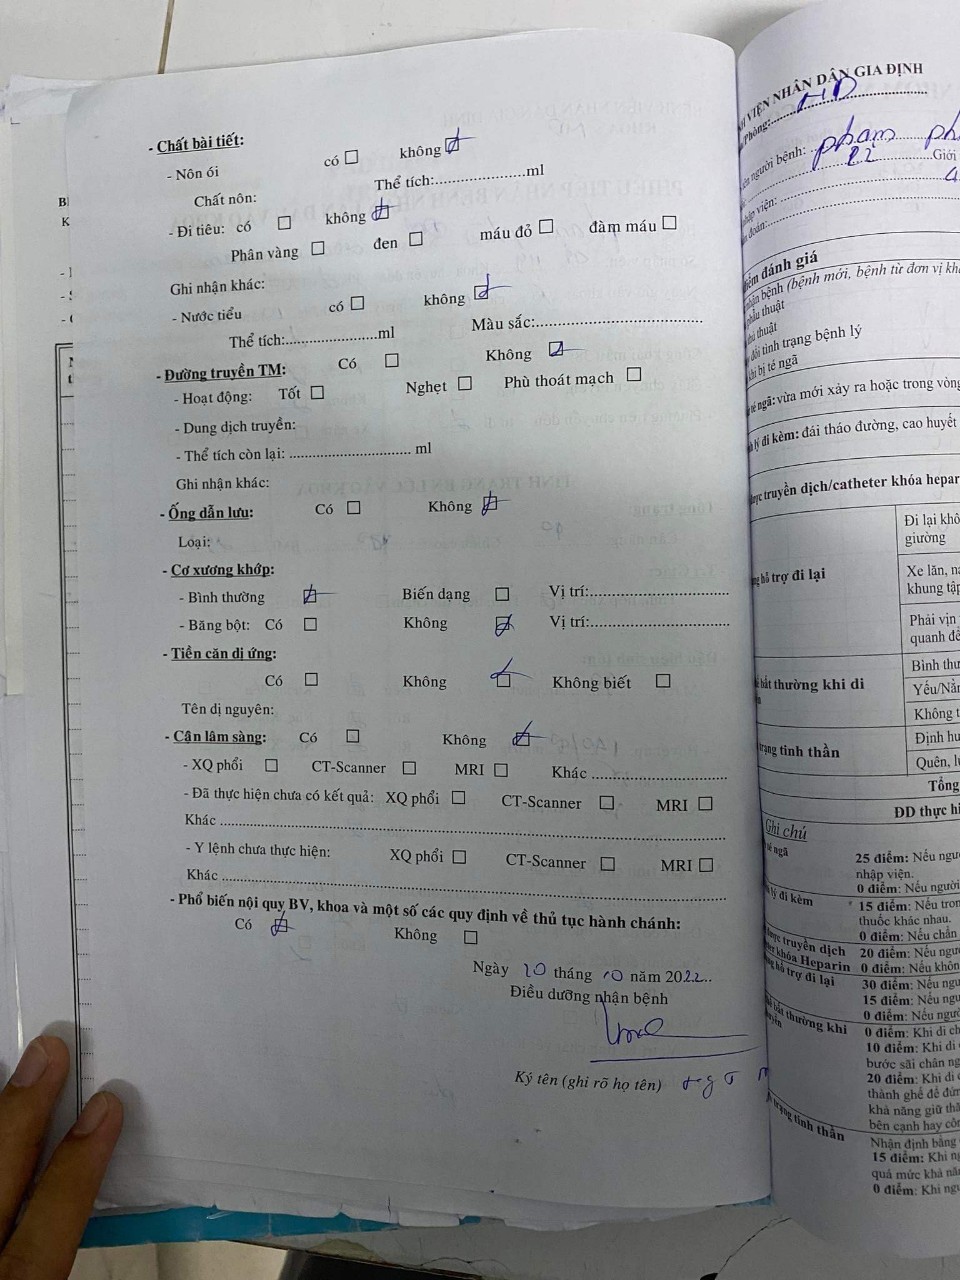 - Chất bài tiết:
- Nôn ói có ☐ không ☒
Chất nôn: Thể tích:........................ml
- Đi tiêu: có ☐ không ☒
Phân vàng ☐ đen ☐ máu đỏ ☐ đàm máu ☐
Ghi nhận khác:
- Nước tiểu có ☐ không ☒
Thể tích:........................ml Màu sắc:....................................
- Đường truyền TM: Có ☐ Không ☒
- Hoạt động: Tốt ☐ Nghẹt ☐ Phù thoát mạch ☐
- Dung dịch truyền:
- Thể tích còn lại: .............................. ml
Ghi nhận khác:
- Ống dẫn lưu: Có ☐ Không ☒
Loại:
- Cơ xương khớp:
- Bình thường ☒ Biến dạng ☐ Vị trí:..............................
- Băng bột: Có ☐ Không ☒ Vị trí:..............................
- Tiền căn dị ứng:
Có ☐ Không ☒ Không biết ☐
Tên dị nguyên:
- Cận lâm sàng: Có ☐ Không ☒
- XQ phổi ☐ CT-Scanner ☐ MRI ☐ Khác ..............................
- Đã thực hiện chưa có kết quả: XQ phổi ☐ CT-Scanner ☐ MRI ☐
Khác ....................................
- Y lệnh chưa thực hiện: XQ phổi ☐ CT-Scanner ☐ MRI ☐
Khác ....................................
- Phổ biến nội quy BV, khoa và một số các quy định về thủ tục hành chánh:
Có ☒ Không ☐
Ngày 20 tháng 10 năm 2022..
Điều dưỡng nhận bệnh
Ký tên (ghi rõ họ tên)
VIỆN NHÂN DÂN GIA ĐỊNH
Phòng: HD
người bệnh: Phạm
22 Giới
viện:
đoán:
đánh giá
bệnh (bệnh mới, bệnh từ đơn vị
thuật
thuật
tình trạng bệnh lý
bị té ngã
té ngã: vừa mới xảy ra hoặc trong vòng
lý đi kèm: đái tháo đường, cao huyết
truyền dịch/catheter khóa
Đi lại
giường
hỗ trợ đi lại
Xe lăn,
khung
Phải vịn
quanh
bất thường khi di
Bình
Không
trạng tinh thần
Định
Quên,
Tổng
ĐD thực
Ghi chú
ngã
25 điểm: Nếu
nhập viện.
0 điểm: Nếu người
lý đi kèm
15 điểm: Nếu
thuốc khác nhau.
0 điểm: Nếu chẩn
truyền dịch
20 điểm: Nếu
khóa Heparin 0 điểm: Nếu
hỗ trợ đi lại 30 điểm: Nếu
15 điểm: Nếu
0 điểm: Nếu
bất thường khi 0 điểm: Khi di
10 điểm: Khi di
bước sải chân
20 điểm: Khi di
thành ghế để
khả năng giữ
bên cạnh hay
trạng tinh thần Nhận định bằng
15 điểm: Khi
quá mức khả
0 điểm: Khi